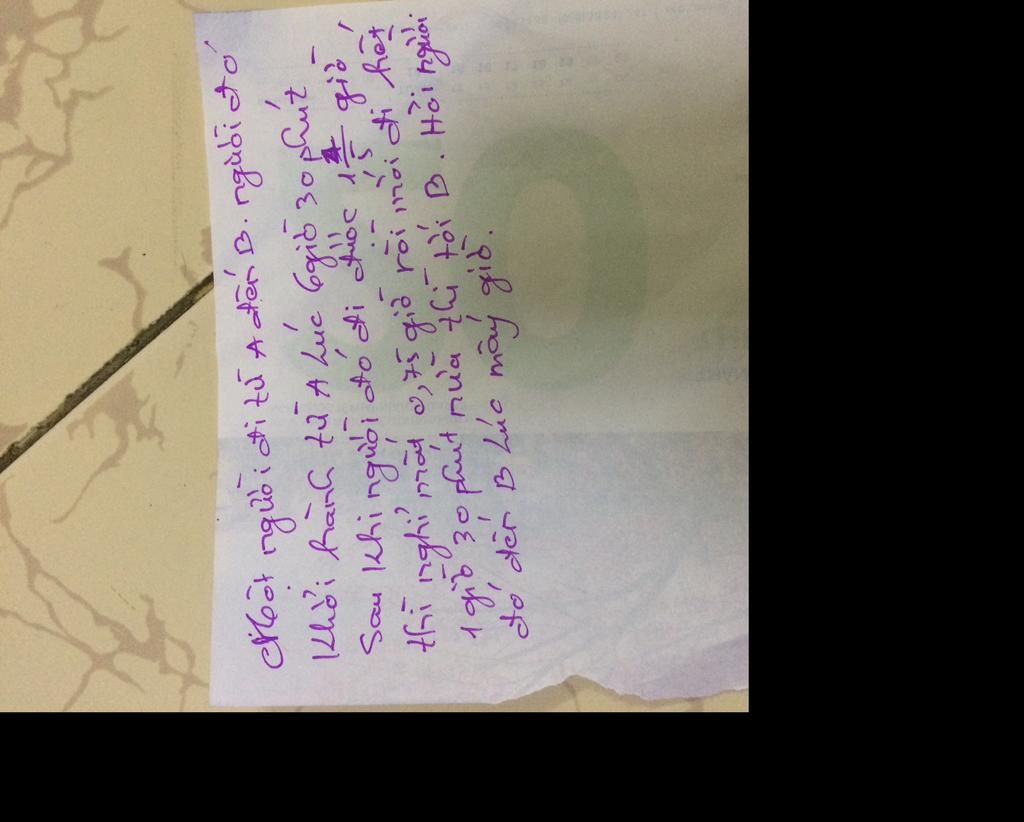 Một người đi từ A đến B. người đó
Khởi hành từ A lúc 6giờ 30 phút
Sau khi người đó đi được 1 4/5 giờ
thì nghỉ mất 0,75 giờ rồi mới đi hết
1 giờ 30 phút nữa thì tới B. Hỏi người
đó đến B lúc mấy giờ.